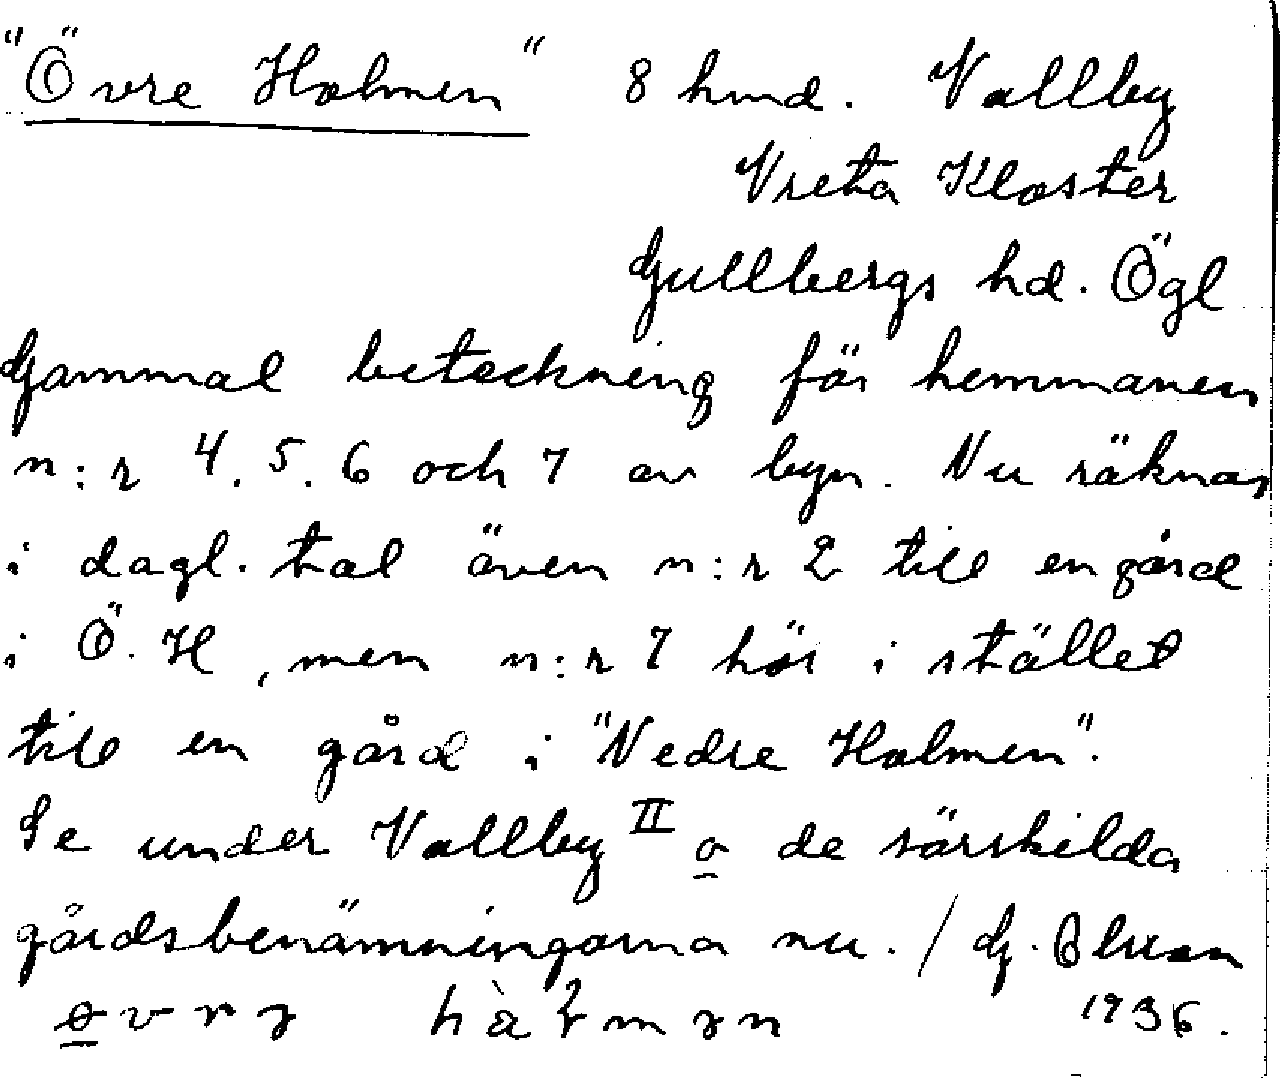 "Övre Holmen" 8 hmd. Vallby
Vreta Kloster
Gullbergs hd. Ögl
Gammal beteckning för hemmanen
n:r 4. 5. 6 och 7 av byn. Nu räknas
i dagl. tal även n:r 2 till en gård
i Ö. H, men n:r 7 hör i stället
till en gård i "Nedre Holmen".
Se under Vallby II o de särskilda
gårdsbenämningarna nu. / G.
1936.